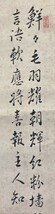 鮮々毛羽耀朝輝紅粉墻
言語軟應將喜報主人知